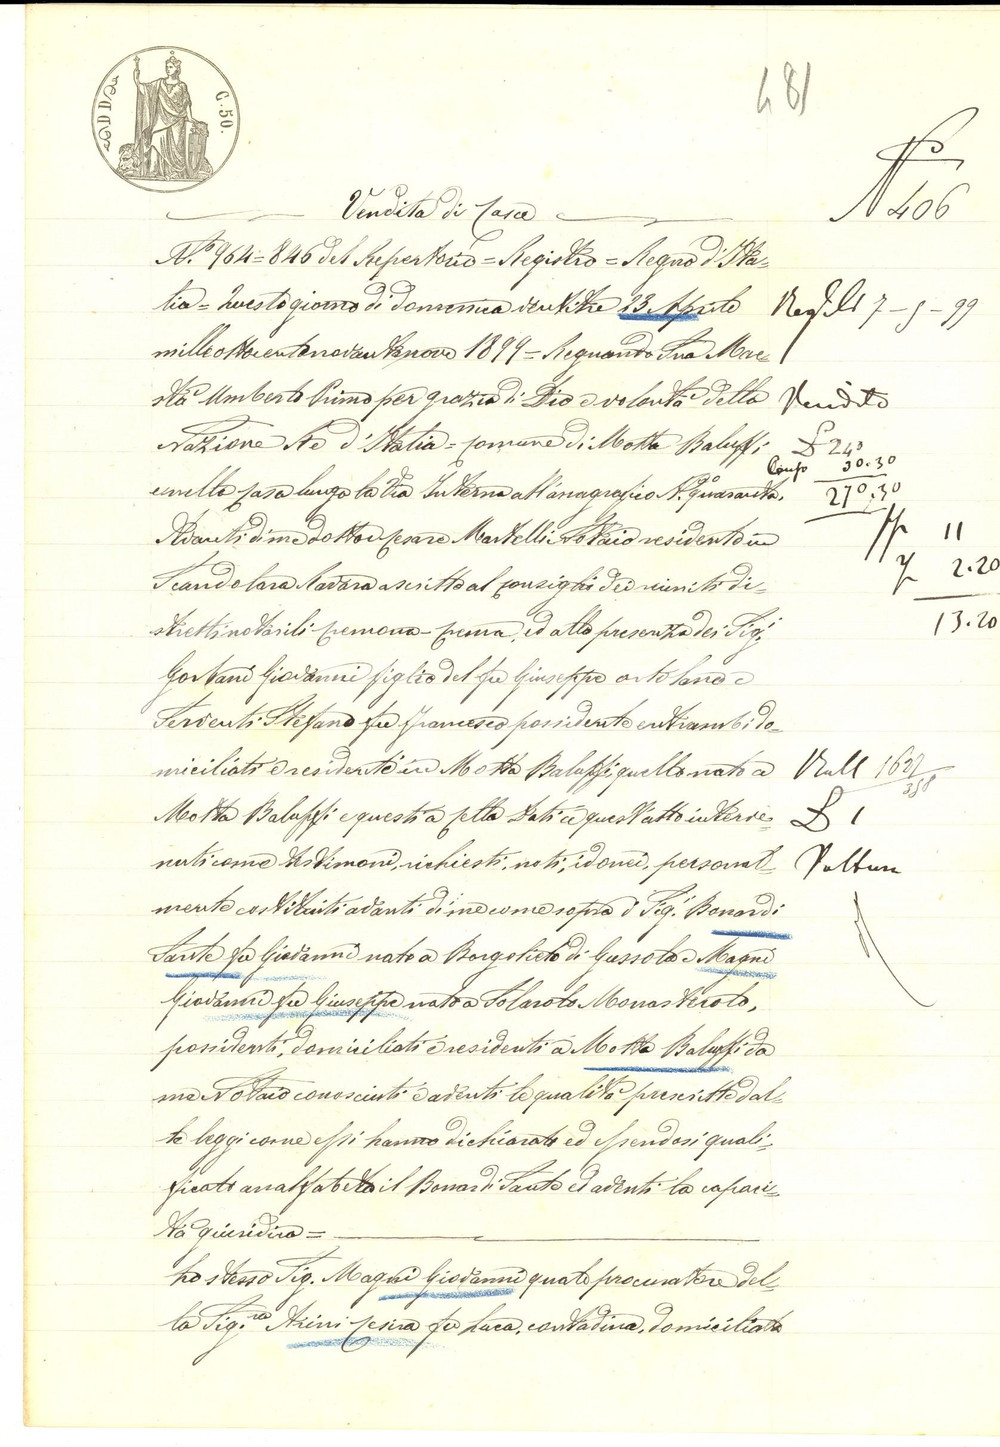 C. 50.
481
N° 406
Vendita di Casa
N.° 964 = 846 del Repertorio = Registro = Regno d'Ita-
lia = Questo giorno di domenica ventitre 23 Aprile
Reg. li 7-5-99
milleottocentonovantanove 1899 = Regnando Sua Mae-
stà Umberto Primo per grazia di Dio e volontà della
Vendita
Nazione Re d'Italia = Comune di Motta Baluffi
£ 240
30.30
e nella casa lungo la Via Interna all'anagrafico N.° quaranta.
270.30
Avanti di me dottor Cesare Martelli Notaio residente in
11
Scandolara Ravara ascritto al Consiglio dei riuniti di-
2.20
stretti notarili Cremona - Crema, ed alla presenza dei Sig.i
13.20
Gorlani Giovanni figlio del fu Giuseppe ortolano e
Serventi Stefano fu Francesco possidente entrambi do-
miciliati e residenti in Motta Baluffi quello nato a
1627
388
Motta Baluffi e questi a Cella Dati a quest'atto interve-
£ 1
nuti come testimoni, richiesti, noti, idonei, personal-
Voltura
mente costituiti avanti di me come sopra i Sig.i Bonardi
Sante fu Giovanni nato a Borgolieto di Gussola e Magni
Giovanni fu Giuseppe nato a Solarolo Monasterolo,
possidenti, domiciliati e residenti a Motta Baluffi da
me Notaio conosciuti e aventi le qualità prescritte dal-
le leggi come essi hanno dichiarato ed essendosi quali-
ficato analfabeta il Bonardi Sante ed aventi la capaci-
tà giuridica =
Lo stesso Sig. Magni Giovanni quale procuratore del-
la Sig.ra Arini Cesira fu Luca, contadina, domiciliata